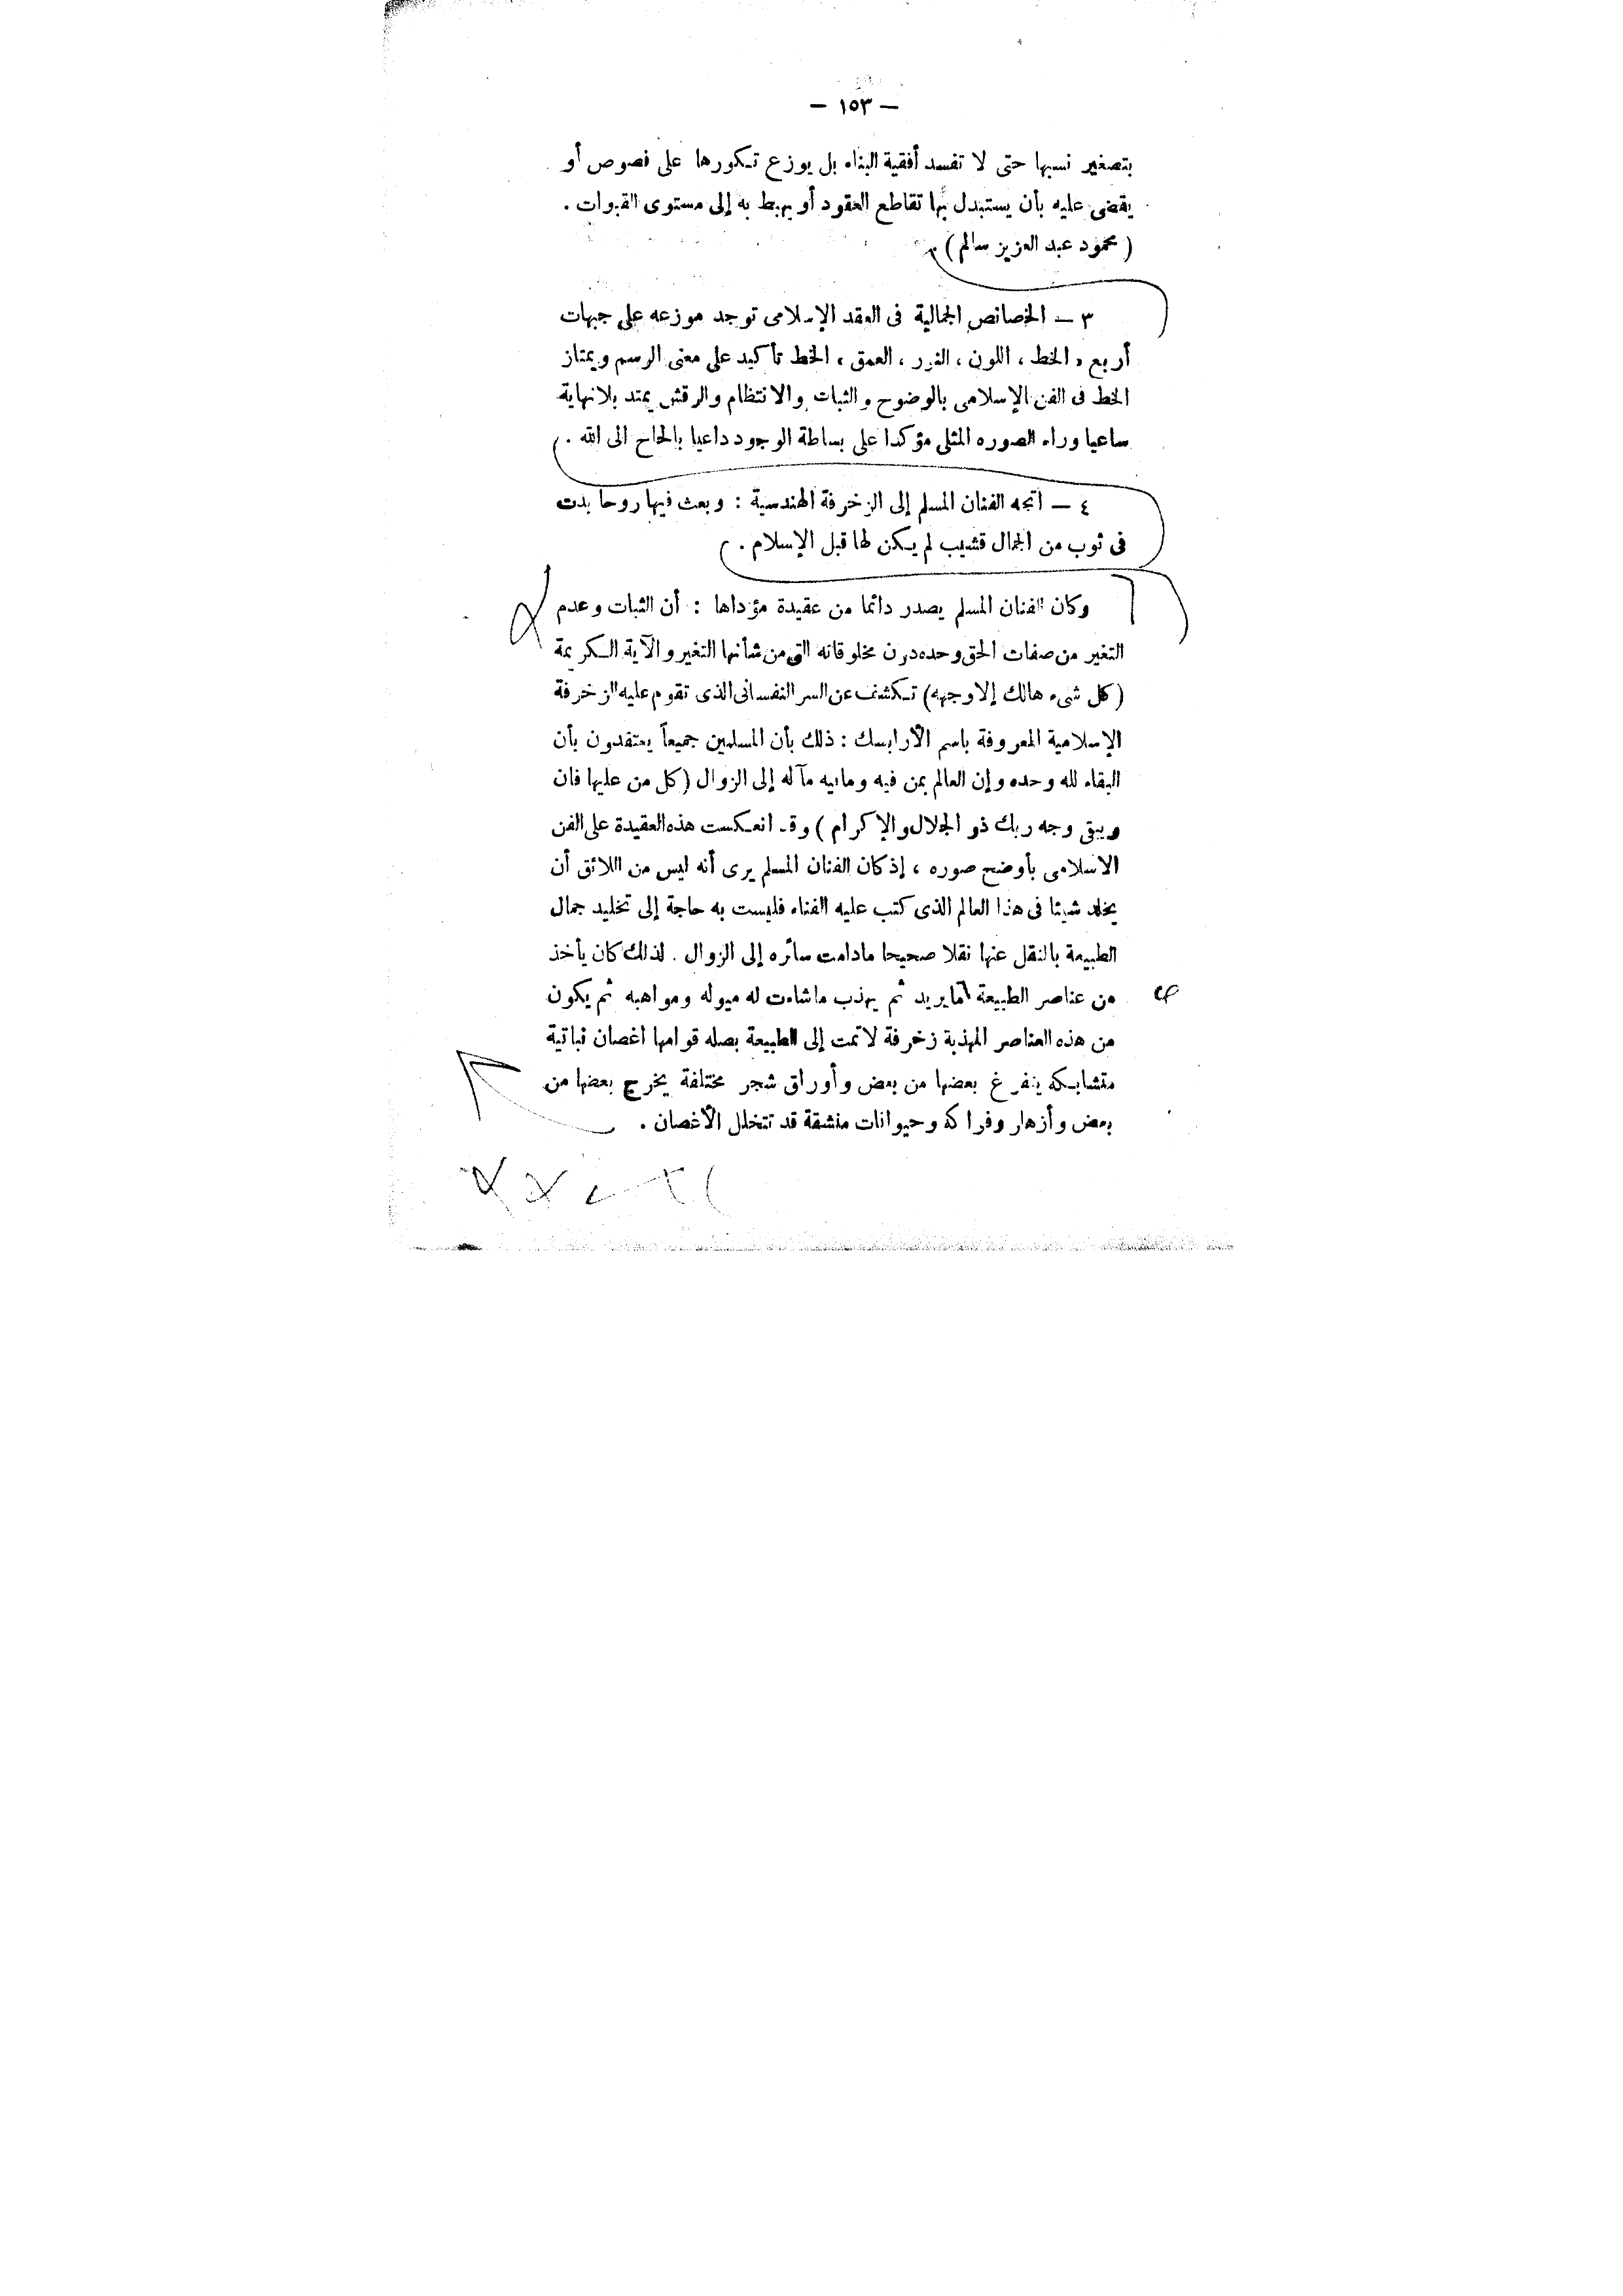 — ١٥٣ —
بتصغير نسبها حتى لا تفسد أفقية البناء بل يوزع تكورها على فصوص أو
يقضى عليه بأن يستبدل بها تقاطع العقود أو يهبط به إلى مستوى القبوات .
( محمود عبد العزيز سالم )
٣ — الخصائص الجمالية فى العقد الإسلامى توجد موزعه على جبهات
أربع ، الخط ، اللون ، النور ، العمق ، الخط تأكيد على معنى الرسم ويمتاز
الخط فى الفن الإسلامى بالوضوح والثبات والانتظام والرقش يمتد بلانهاية
ساعيا وراء الصوره المثلى مؤكدا على بساطة الوجود داعيا بالحاح الى الله .
٤ — اتجه الفنان المسلم إلى الزخرفة الهندسية : وبعث فيها روحا بدت
فى ثوب من الجمال قشيب لم يكن لها قبل الإسلام .
وكان الفنان المسلم يصدر دائما من عقيدة مؤداها : أن الثبات وعدم
التغير من صفات الحق وحده درن مخلوقاته التى من شأنها التغير والآية الكريمة
(كل شىء هالك إلا وجهه) تكشف عن السر النفسانى الذى تقوم عليه الزخرفة
الإسلامية المعروفة باسم الأرابسك : ذلك بأن المسلمين جميعاً يعتقدون بأن
البقاء لله وحده وإن العالم بمن فيه ومافيه مآله إلى الزوال (كل من عليها فان
ويبقى وجه ربك ذو الجلال والإكرام ) وقد انعكست هذه العقيدة على الفن
الاسلامى بأوضح صوره ، إذ كان الفنان المسلم يرى أنه ليس من اللائق أن
يخلد شيئا فى هذا العالم الذى كتب عليه الفناء فليست به حاجة إلى تخليد جمال
الطبيعة بالنقل عنها نقلا صحيحا مادامت سائره إلى الزوال . لذلك كان يأخذ
من عناصر الطبيعة مايريد ثم يهذب ماشاءت له ميوله ومواهبه ثم يكون
من هذه العناصر المهذبة زخرفة لاتمت إلى الطبيعة بصله قوامها اغصان نباتية
متشابكه يتفرغ بعضها من بعض وأوراق شجر مختلفة يخرج بعضها من
بعض وأزهار وفواكه وحيوانات منشقة قد تتخلل الأغصان .